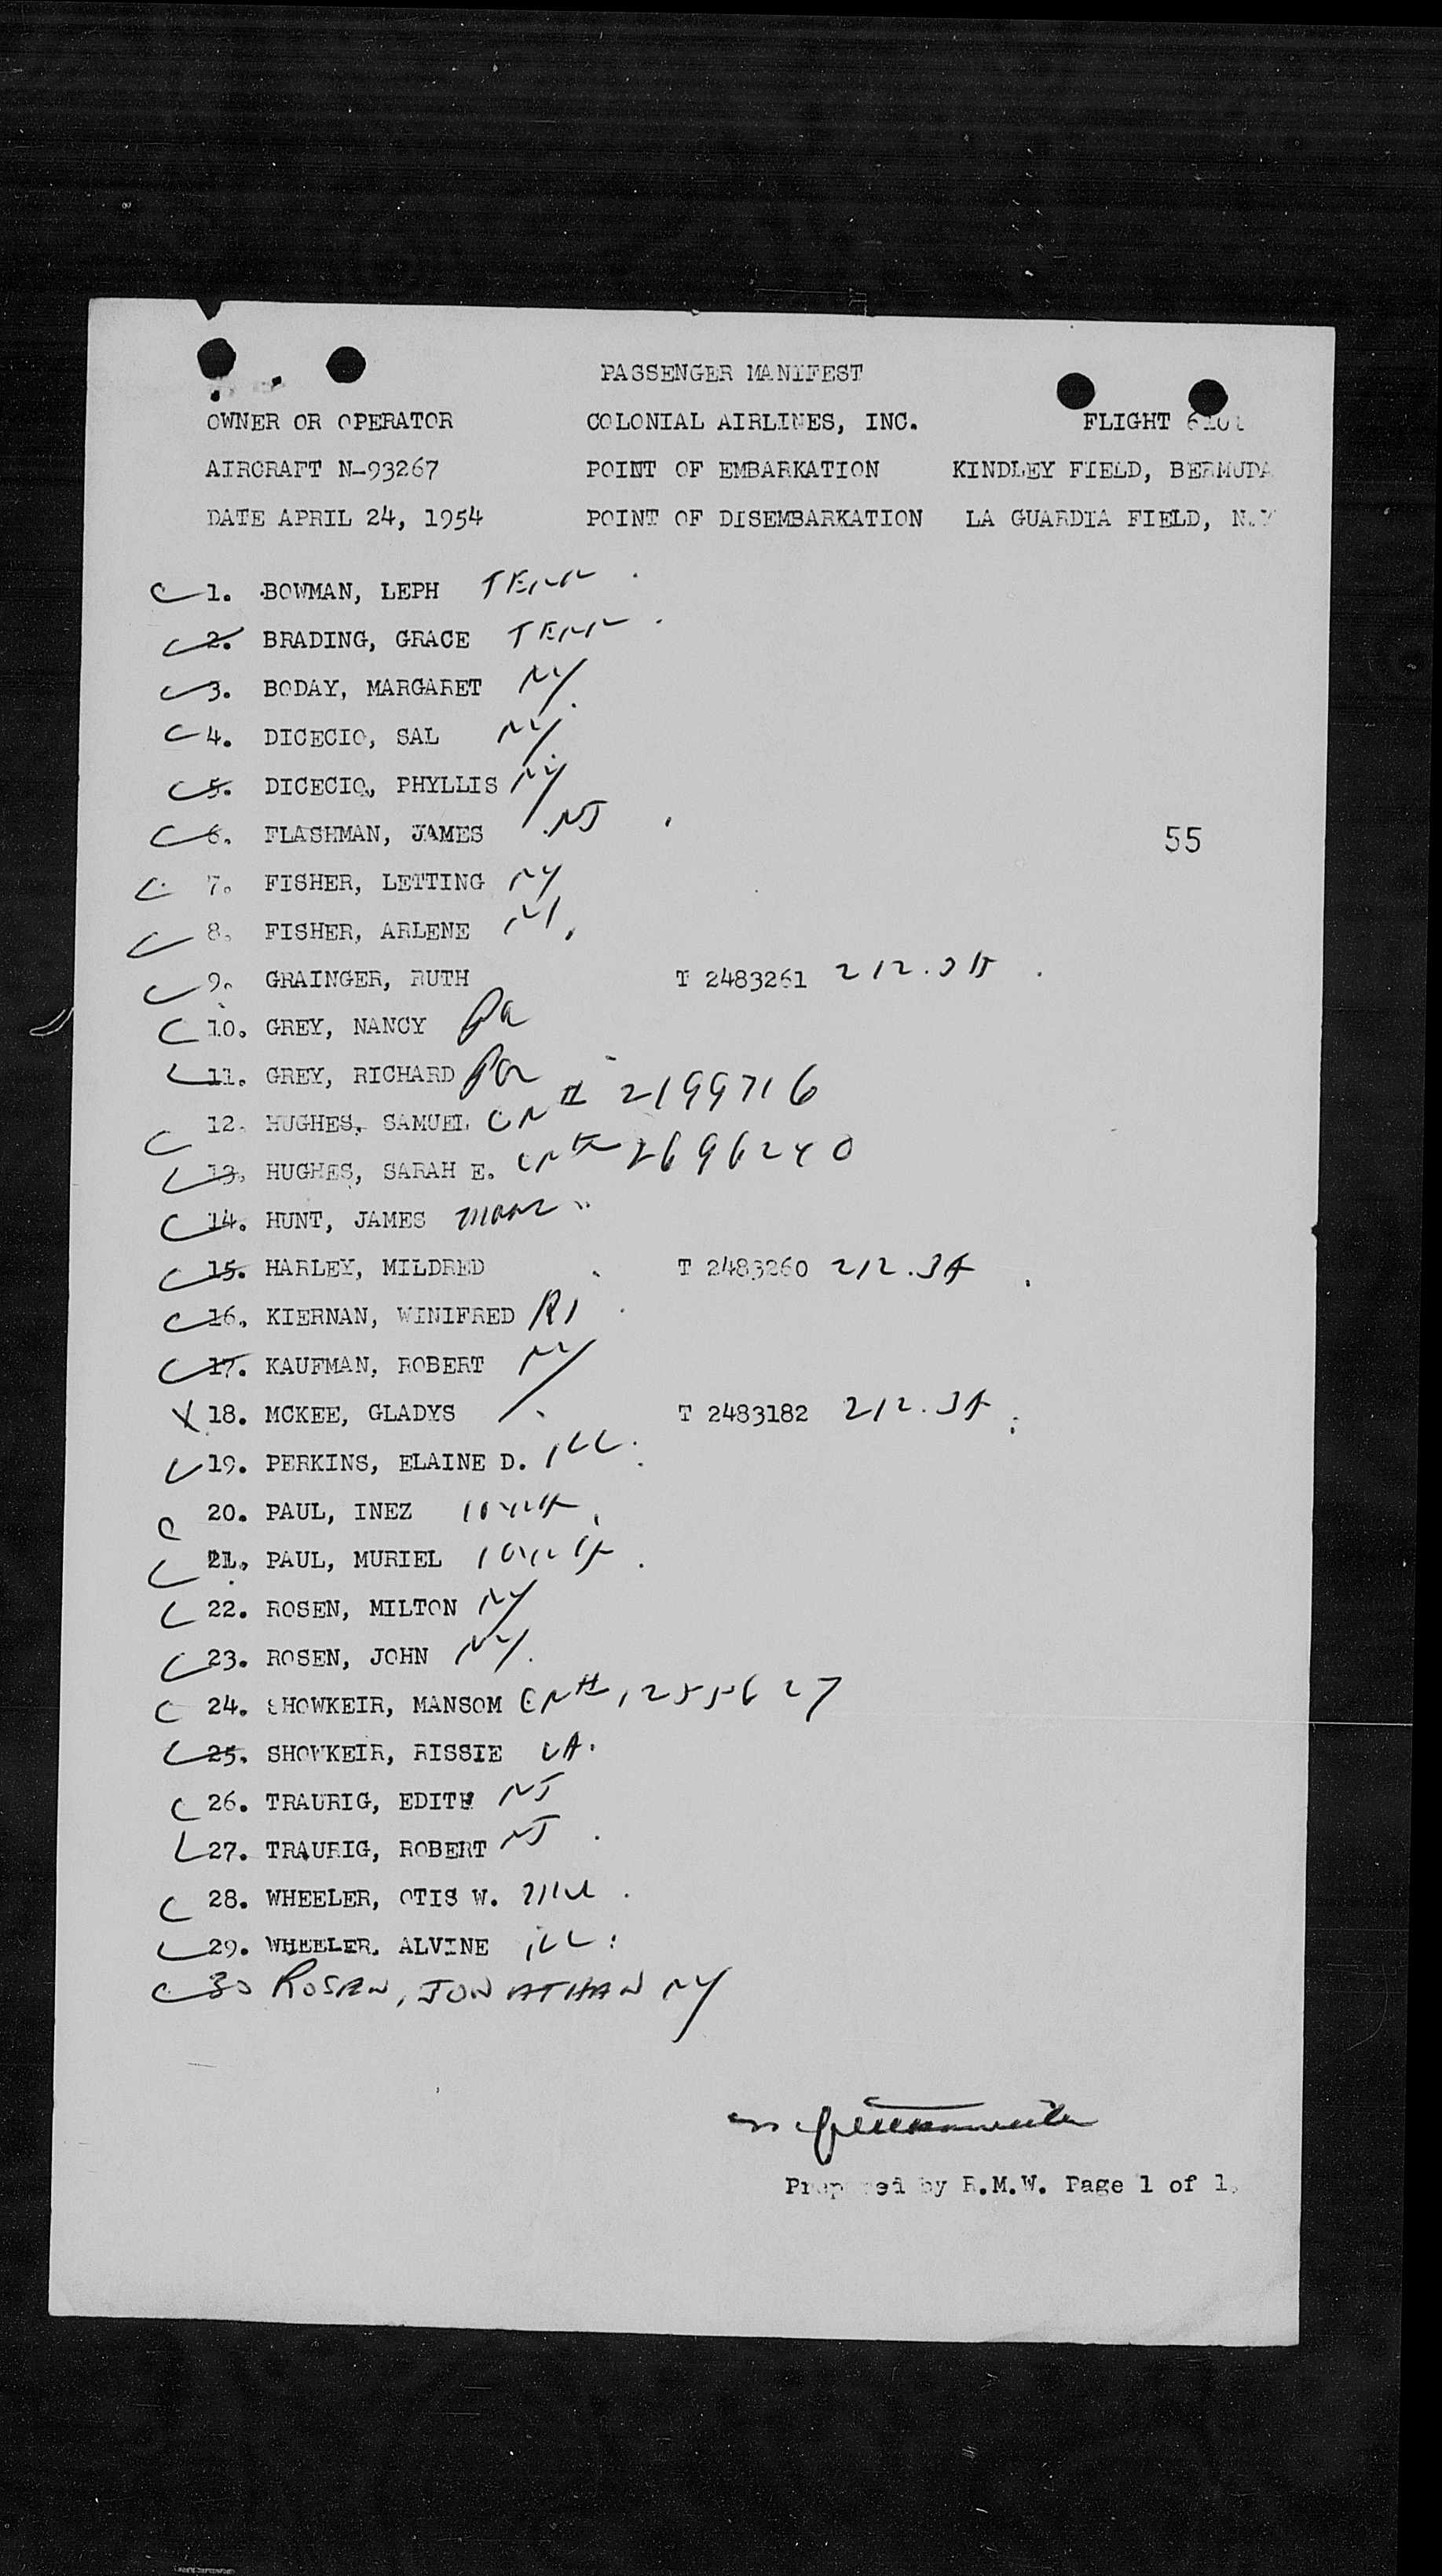 PASSENGER MANIFEST
OWNER OR OPERATOR COLONIAL AIRLINES, INC. FLIGHT
AIRCRAFT N-93267 POINT OF EMBARKATION KINDLEY FIELD, BERMUDA
DATE APRIL 24, 1954 POINT OF DISEMBARKATION LA GUARDIA FIELD, N.Y
1. BOWMAN, LEPH TENN
2. BRADING, GRACE TENN
3. BODAY, MARGARET NY
4. DICECIO, SAL NY
5. DICECIO, PHYLLIS NY
6. FLASHMAN, JAMES NJ
55
7. FISHER, LETTING NY
8. FISHER, ARLENE
9. GRAINGER, RUTH T 2483261
10. GREY, NANCY Pa
11. GREY, RICHARD Pa
12. HUGHES, SAMUEL CN# 2199716
13. HUGHES, SARAH E. CN# 2696240
14. HUNT, JAMES
15. HARLEY, MILDRED T 2483260 212.3A
16. KIERNAN, WINIFRED RI
17. KAUFMAN, ROBERT NY
18. MCKEE, GLADYS T 2483182 212.3A
19. PERKINS, ELAINE D. ILL
20. PAUL, INEZ
21. PAUL, MURIEL
22. ROSEN, MILTON NY
23. ROSEN, JOHN NY
24. SHOWKEIR, MANSOM CN#
25. SHOWKEIR, RISSIE
26. TRAURIG, EDITH NJ
27. TRAURIG, ROBERT NJ
28. WHEELER, OTIS W.
29. WHEELER, ALVINE ILL
30 ROSEN, JONATHAN NY
Prepared by R.M.W. Page 1 of 1.